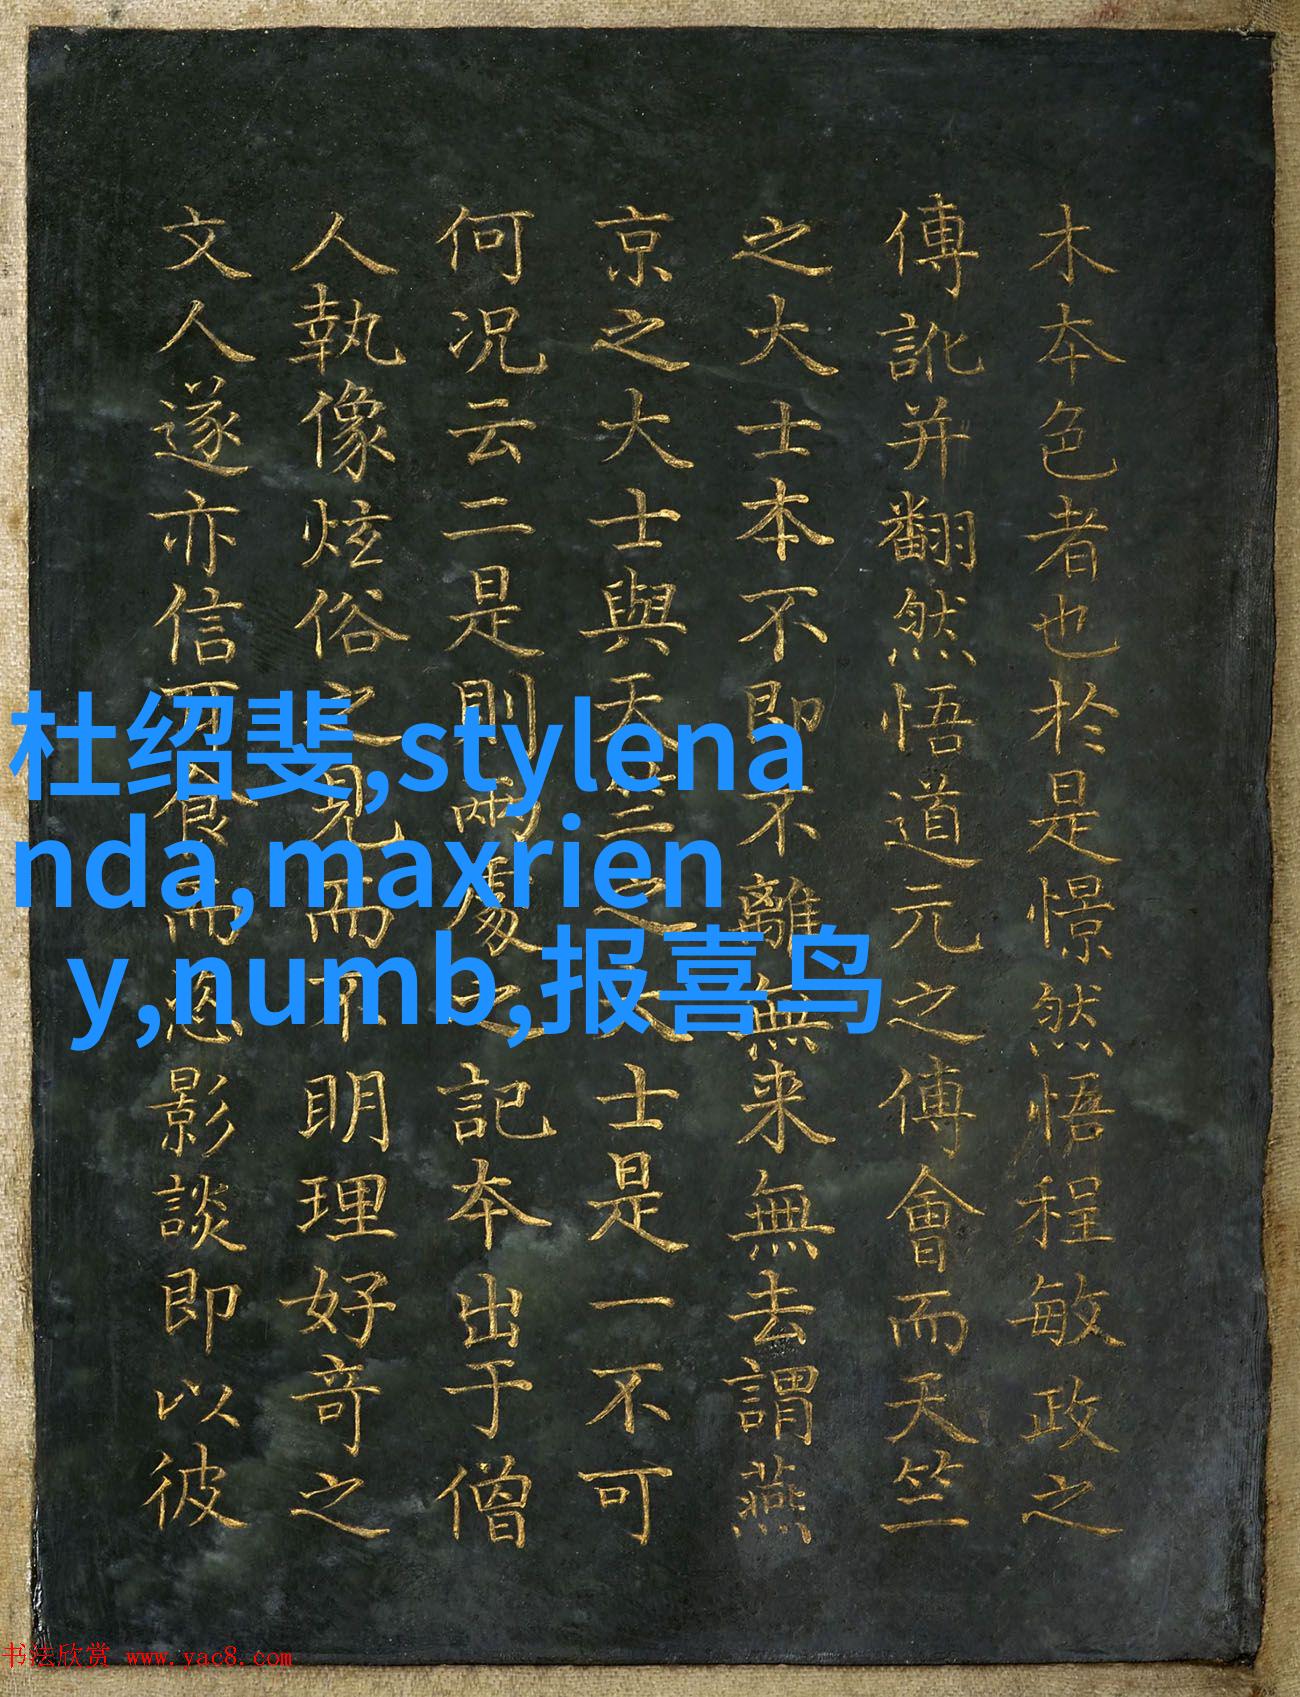 木本色者也於是憬然悟程敏政之
傳訛并翻然悟道元之傅會而天竺
之大士本不即不離無来無去謂燕
京之大士與天竺之大士是一不可
何况云二是則兩馬之記本出于僧
人執像炫俗之見而不明理好竒之
文人遂亦信耳食而忽影談即以彼
杜绍斐,stylena
nda,maxrien
y,numb,报喜鸟
书法欣赏 www.yac8.com